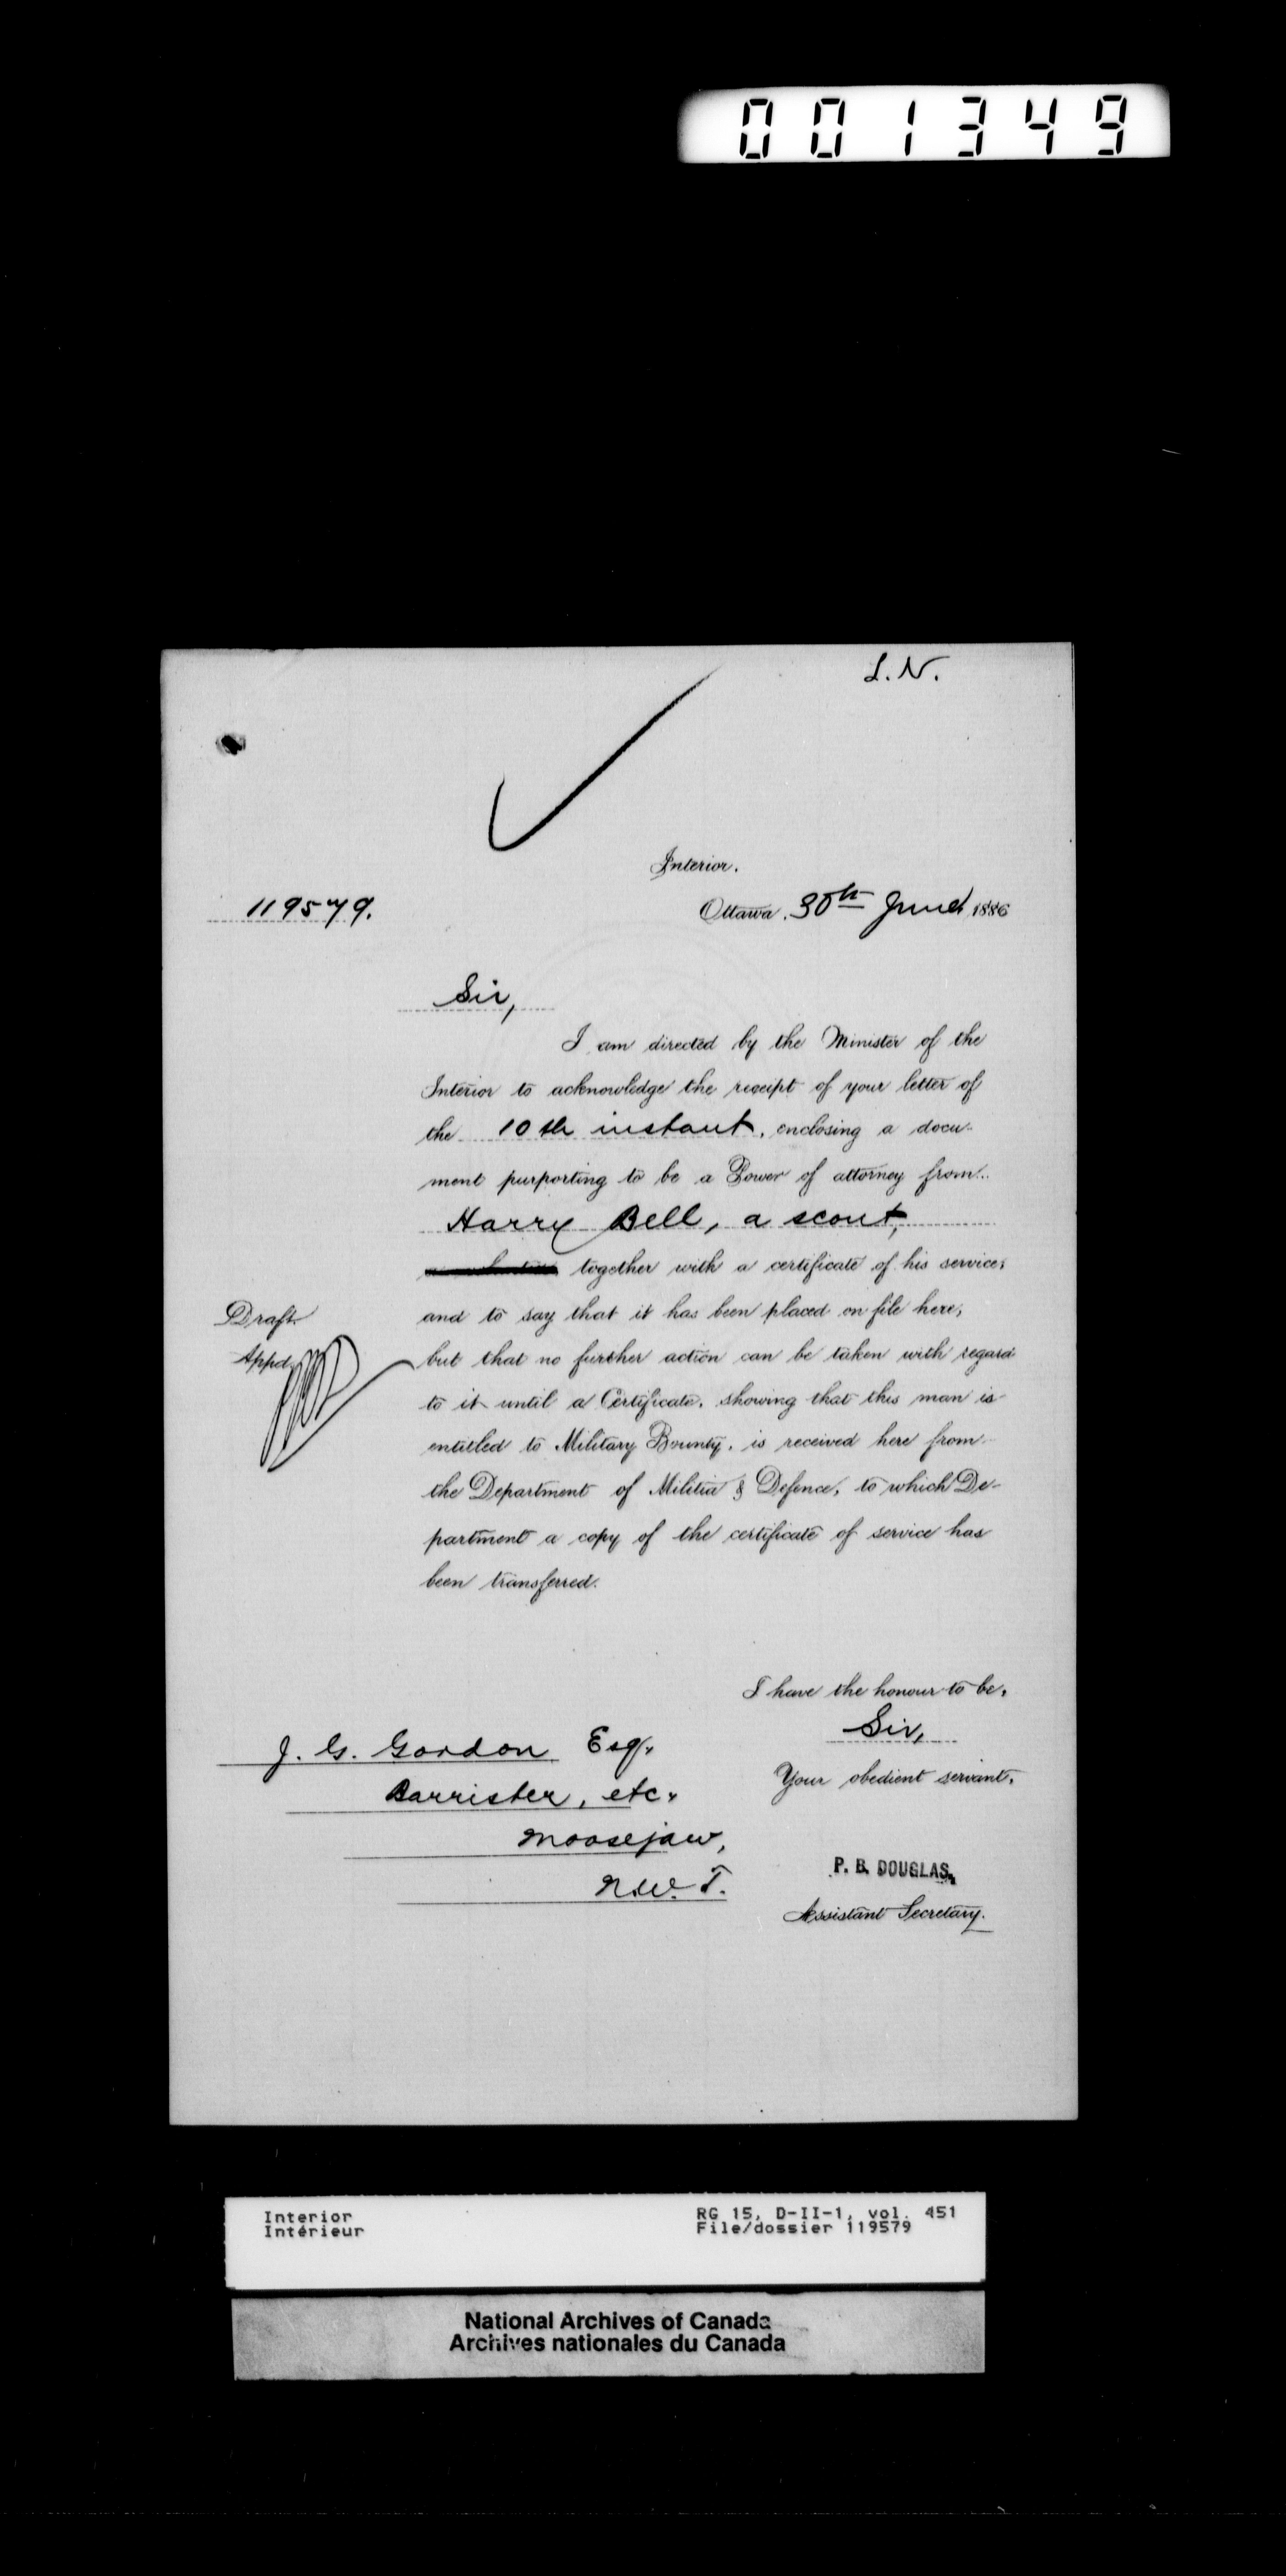 001349
L.N.
Interior.
119579.
Ottawa, 30th June 1886
Sir,
I am directed by the Minister of the
Interior to acknowledge the receipt of your letter of
the 10th instant, enclosing a docu-
ment purporting to be a Power of attorney from
Harry Bell, a scout,
together with a certificate of his service;
and to say that it has been placed on file here,
Draft
Appd.
but that no further action can be taken with regard
to it until a Certificate, showing that this man is
entitled to Military Bounty, is received here from
the Department of Militia & Defence, to which De-
partment a copy of the certificate of service has
been transferred.
I have the honour to be,
Sir,
Your obedient servant,
P. B. DOUGLAS,
Assistant Secretary.
J. G. Gordon Esq.
Barrister, etc.
Moosejaw,
N.W.T.
Interior
Intérieur
RG 15, D-II-1, vol. 451
File/dossier 119579
National Archives of Canada
Archives nationales du Canada